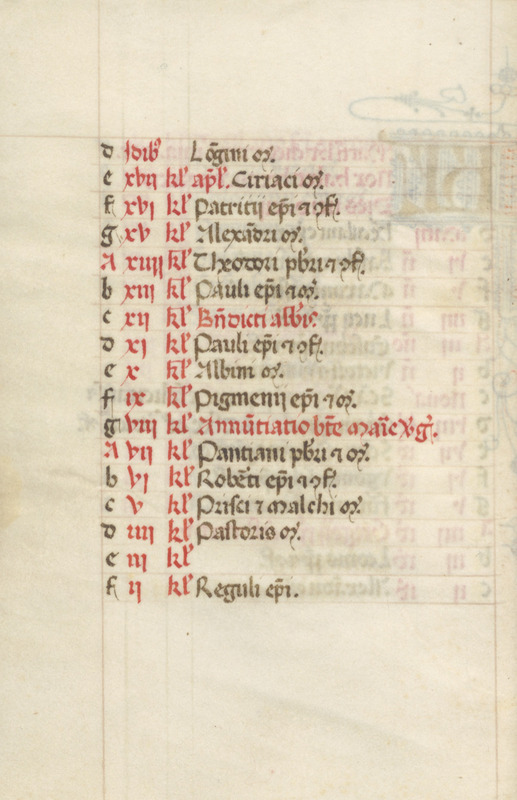 d Idibꝰ Lōgini mr̄.
e xvii kl̄ apl̄. Ciriaci mr̄.
f xvi kl̄ Patritij ep̄i ⁊ ꝯf.
g xv kl̄ Alexādri mr̄.
A xiiii kl̄ Theodori pb̄ri ⁊ ꝯf.
b xiii kl̄ Pauli ep̄i ⁊ mr̄.
c xii kl̄ Bn̄dicti abb̄is.
d xi kl̄ Pauli ep̄i ⁊ ꝯf.
e x kl̄ Albini mr̄.
f ix kl̄ Pigmenij ep̄i ⁊ mr̄.
g viii kl̄ Annūtiatio bt̄e Mar̄ie v̄ḡ.
A vii kl̄ Pantiani pb̄ri ⁊ mr̄.
b vi kl̄ Rob̄erti ep̄i ⁊ ꝯf.
c v kl̄ Prisci ⁊ malchi mr̄.
d iiii kl̄ Pastoris mr̄.
e iii kl̄
f ii kl̄ Reguli ep̄i.